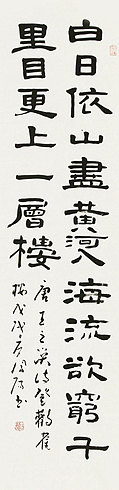 白日依山盡黃河入海流欲窮千
里目更上一層樓
唐王之渙詩登鸛雀
樓戊戌書